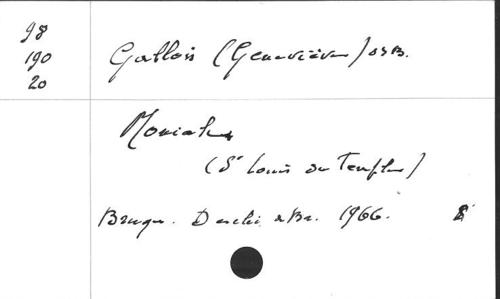 98
190
20
Gallois (Geneviève) OSB.
Moniales
(St Louis du Temple)
Bruges. Desclée &Br. 1966.